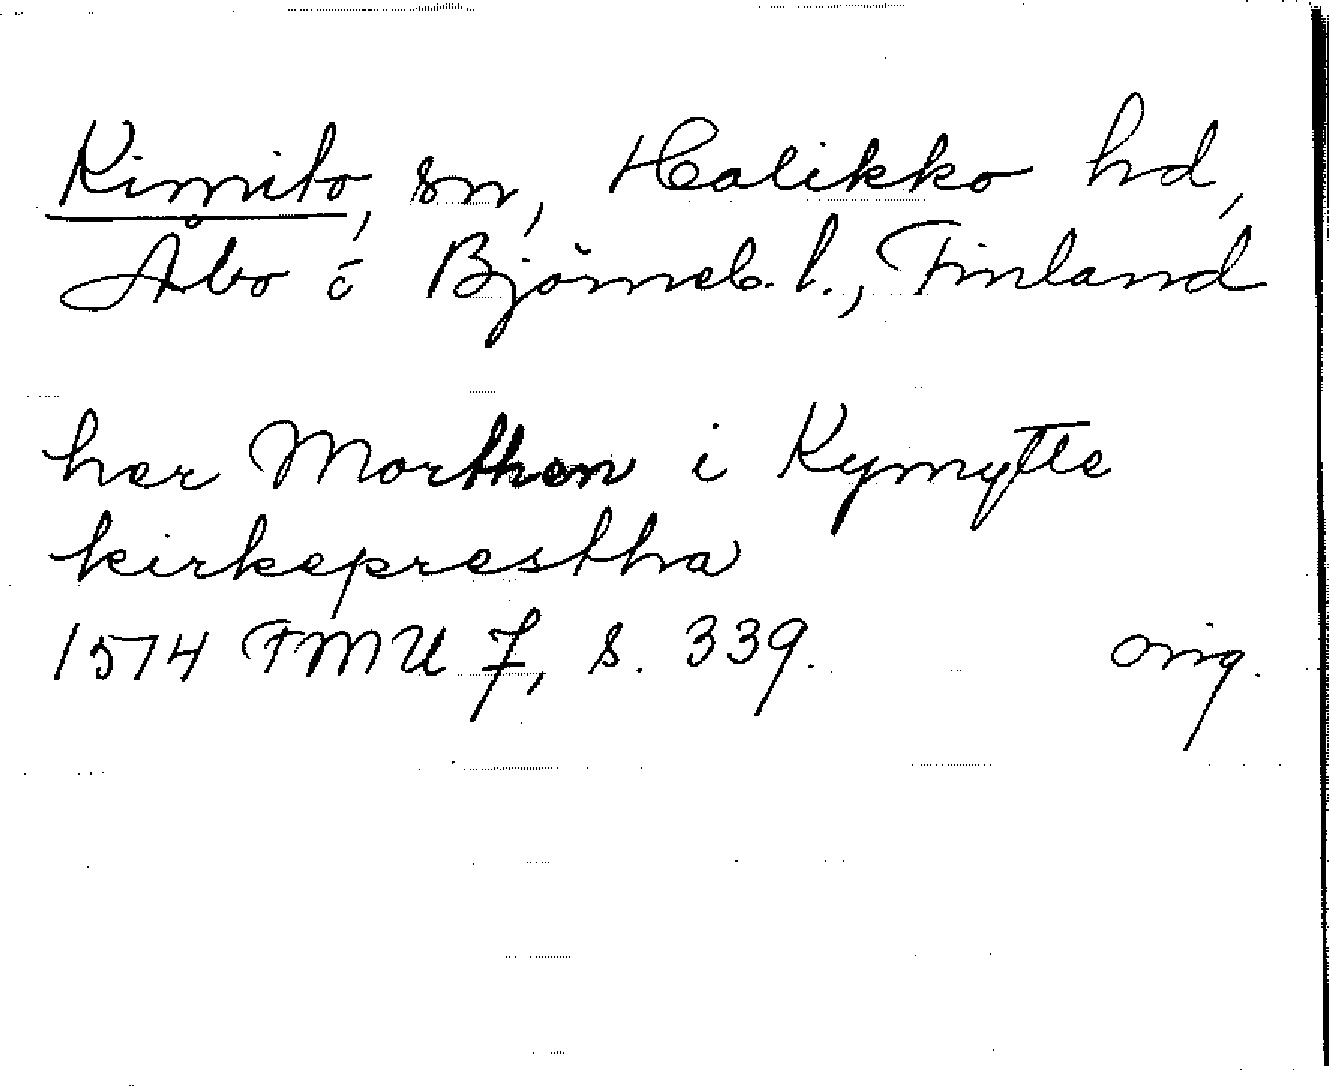 Kimito, sn, Halikko hd,
Åbo o Björneb. l., Finland
her Morthen i Kymytte
kirkeprestha
1574 FMU 7, s. 339. orig.